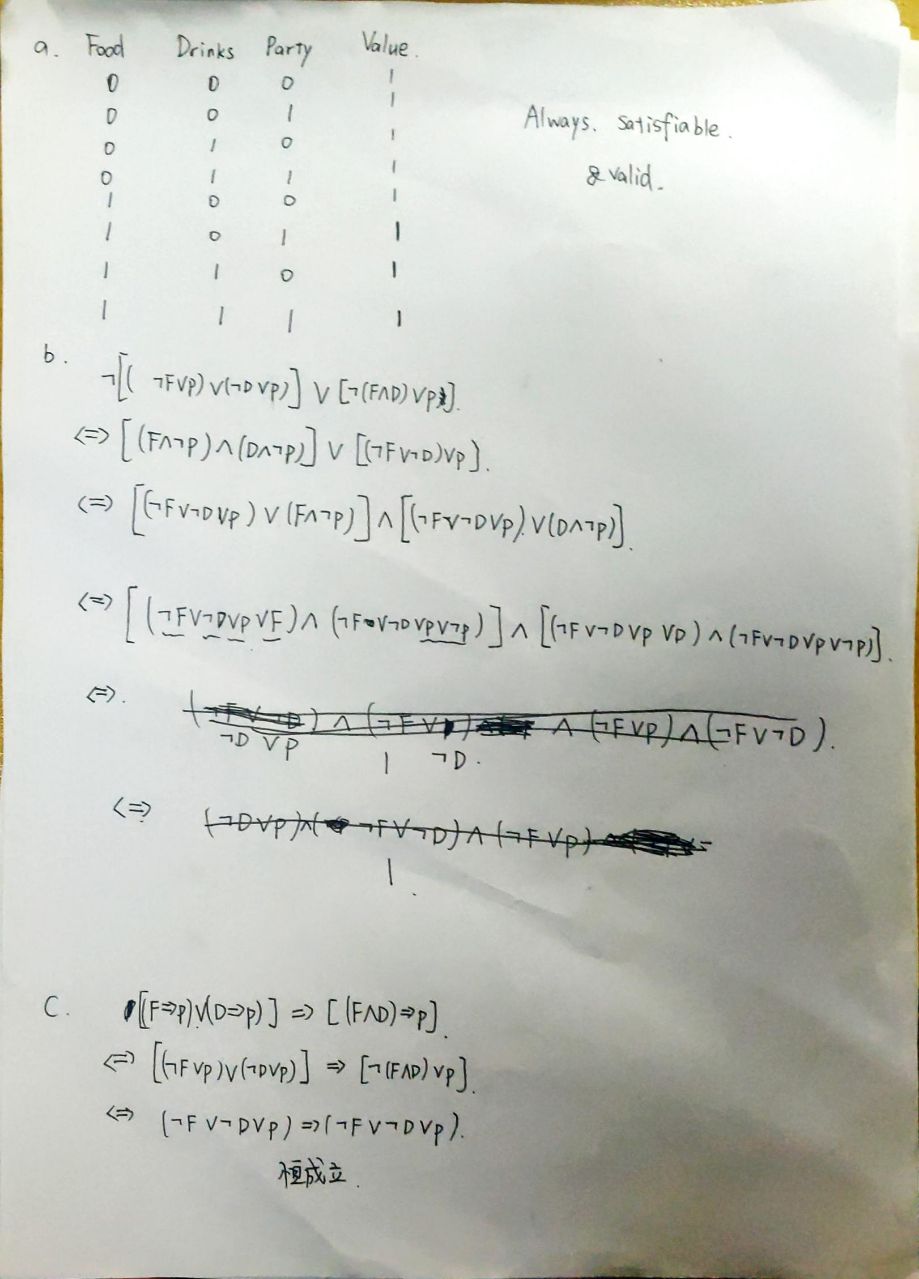 a. Food Drinks Party Value.
0 0 0 1
0 0 1 1
0 1 0 1
0 1 1 1
1 0 0 1
1 0 1 1
1 1 0 1
1 1 1 1
Always. satisfiable.
& valid.
b.
¬[(¬F∨p)∨(¬D∨p)] ∨ [¬(F∧D)∨p].
<=> [(F∧¬p)∧(D∧¬p)] ∨ [(¬F∨¬D)∨p].
<=> [(¬F∨¬D∨p)∨(F∧¬p)]∧[(¬F∨¬D∨p)∨(D∧¬p)].
<=> [(¬F∨¬D∨p∨F)∧(¬F∨¬D∨p∨¬p)]∧[(¬F∨¬D∨p∨D)∧(¬F∨¬D∨p∨¬p)].
<=>. (¬F∨¬D)∧(¬F∨p) ∧(¬F∨p)∧(¬F∨¬D).
¬D∨p 1 ¬D.
<=> (¬D∨p)∧(¬F∨¬D)∧(¬F∨p)
1.
C. [(F=>p)∨(D=>p)] => [(F∧D)=>p].
<=> [(¬F∨p)∨(¬D∨p)] => [¬(F∧D)∨p].
<=> (¬F∨¬D∨p)=>(¬F∨¬D∨p).
恒成立.